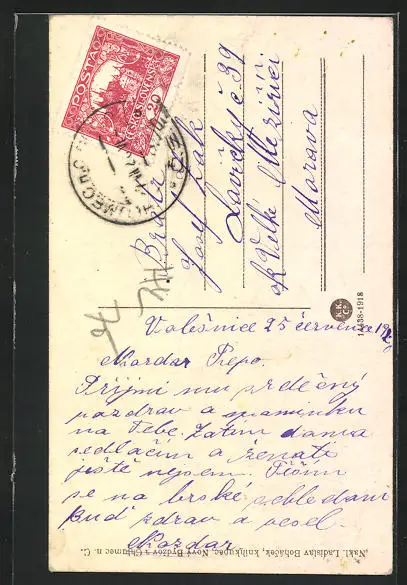 POSTA
ČESKO-SLOVENSKÁ
20
CHLUMEC n. C.
Bratr
Josef Žák
Lavičky č 39
ok Velké Meziříčí
Morava
N.K. Co.
14438-1918
Volešnice 25 července 19
Nazdar Pepo.
Přijmi mu srdečný
pozdrav a vzpomínku
na Tebe. Zatím doma
sedlačím a ženatí
ještě nejsem. Těším
se na brské shledání
Buď zdráv a vesel.
Nazdar
Nakl. Ladislav Boháček, knihkupec, Nový Bydžov a Chlumec n. C.